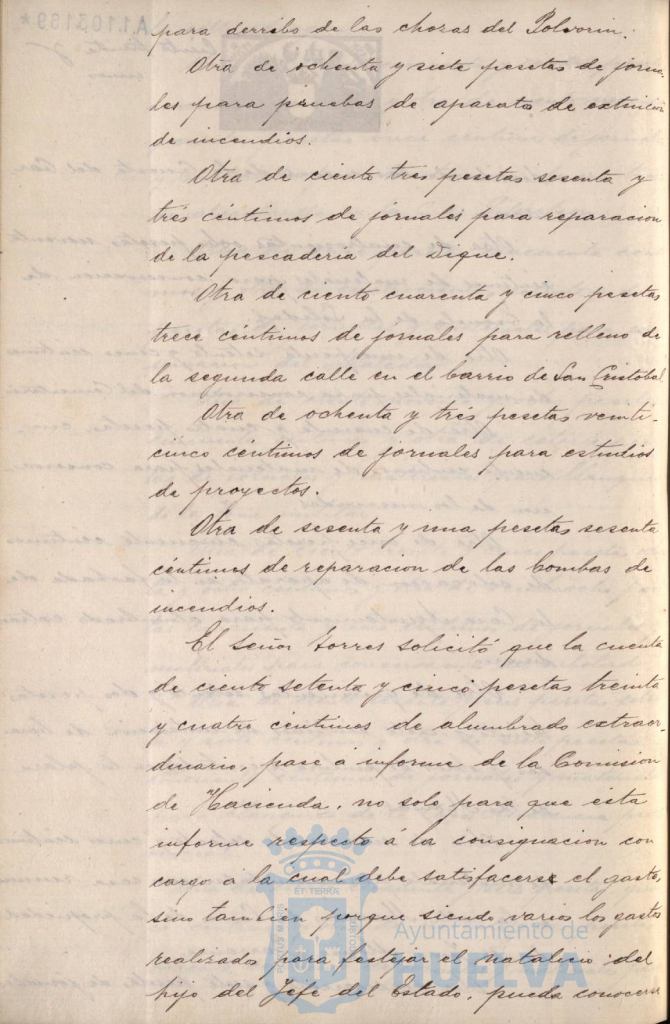 para derribo de las chozas del Polvorin.
Otra de ochenta y siete pesetas de jorna-
les para pruebas de aparato de extincion
de incendios.
Otra de ciento tres pesetas sesenta y
trés céntimos de jornales para reparacion
de la pescaderia del Dique.
Otra de ciento cuarenta y cinco pesetas
trece céntimos de jornales para relleno de
la segunda calle en el barrio de San Cristobal
Otra de ochenta y trés pesetas veinti-
cinco céntimos de jornales para estudios
de proyectos.
Otra de sesenta y una pesetas sesenta
céntimos de reparacion de las bombas de
incendios.
El Señor Torres solicitó que la cuenta
de ciento setenta y cinco pesetas treinta
y cuatro céntimos de alumbrado extraor-
dinario, pase á informe de la Comision
de Hacienda, no solo para que ésta
informe respecto á la consignacion con
cargo á la cual debe satisfacerse el gasto,
sino tambien porque siendo varios los gastos
realizados para festejar el natalicio del
hijo del Jefe del Estado, pueda conocerse
A1103189*
ET TERRA
Ayuntamiento de
HUELVA